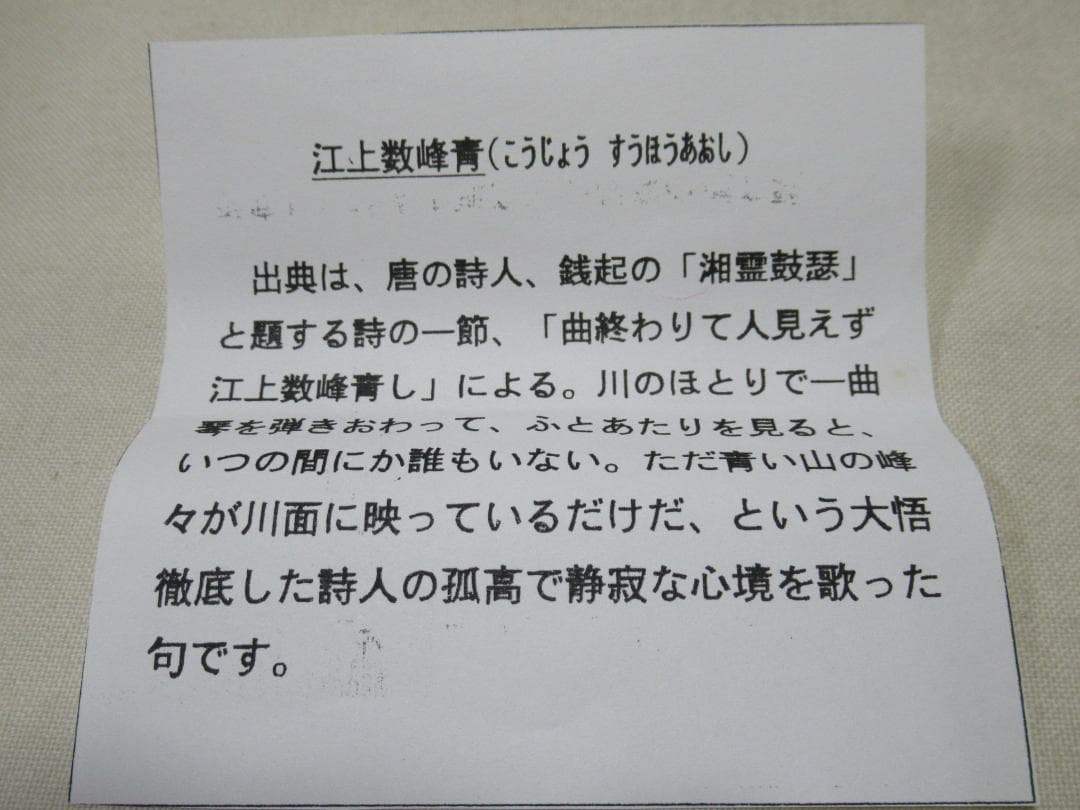 江上数峰青(こうじょう すうほうあおし)
出典は、唐の詩人、銭起の「湘霊鼓瑟」
と題する詩の一節、「曲終わりて人見えず
江上数峰青し」による。川のほとりで一曲
琴を弾きおわって、ふとあたりを見ると、
いつの間にか誰もいない。ただ青い山の峰
々が川面に映っているだけだ、という大悟
徹底した詩人の孤高で静寂な心境を歌った
句です。